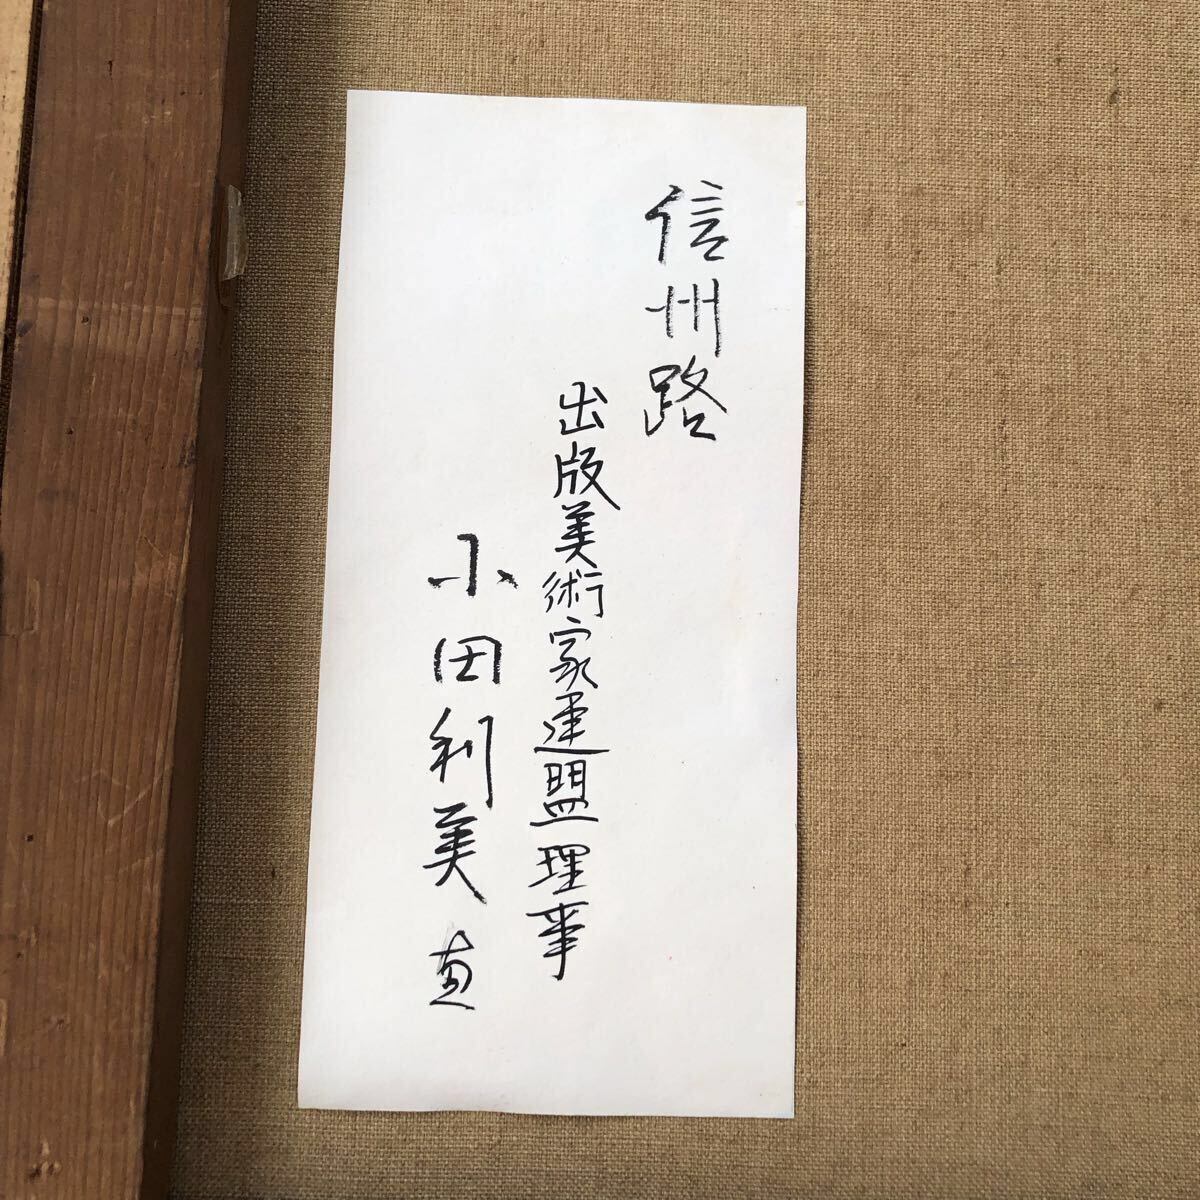 信州路
出版美術家連盟理事
小田利美画